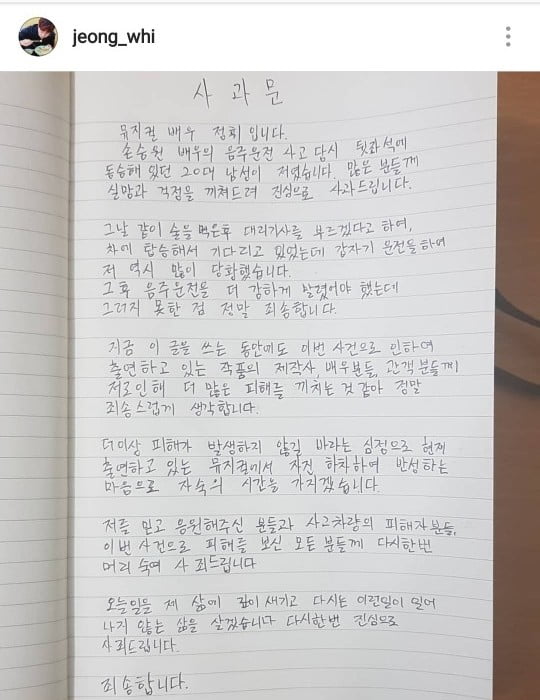 jeong_whi
사 과 문
뮤지컬 배우 정휘 입니다.
손승원 배우의 음주운전 사고 당시 뒷좌석에
동승해 있던 20대 남성이 저였습니다. 많은 분들께
실망과 걱정을 끼쳐드려 진심으로 사과드립니다.
그날 같이 술을 먹은후 대리기사를 부르겠다고 하여,
차에 탑승해서 기다리고 있었는데 갑자기 운전을 하여
저 역시 많이 당황했습니다.
그후 음주운전을 더 강하게 말렸어야 했는데
그러지 못한 점 정말 죄송합니다.
지금 이 글을 쓰는 동안에도 이번 사건으로 인하여
출연하고 있는 작품의 제작사, 배우분들, 관객 분들께
저로인해 더 많은 피해를 끼치는 것 같아 정말
죄송스럽게 생각합니다.
더이상 피해가 발생하지 않길 바라는 심정으로 현재
출연하고 있는 뮤지컬에서 자진 하차하여 반성하는
마음으로 자숙의 시간을 가지겠습니다.
저를 믿고 응원해주신 분들과 사고차량의 피해자분들,
이번 사건으로 피해를 보신 모든 분들께 다시한번
머리 숙여 사 죄드립니다
오늘일을 제 삶에 깊이 새기고 다시는 이런일이 일어
나지 않는 삶을 살겠습니다 다시한번 진심으로
사죄드립니다.
죄송합니다.